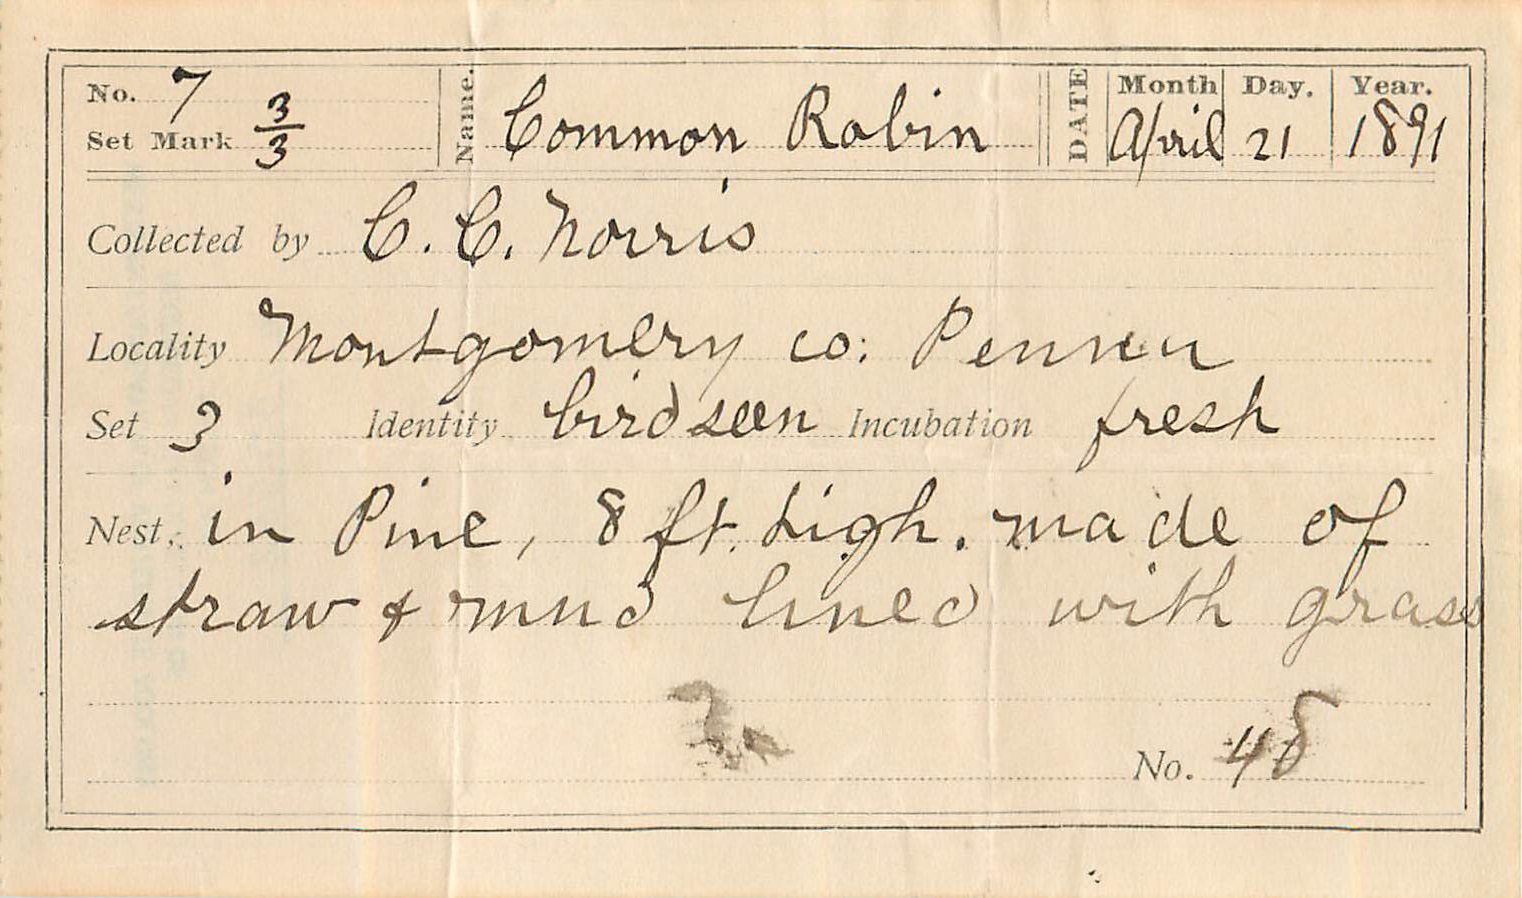 No. 7 Name. Common Robin DATE Month Day. Year.
Set Mark 3/3 April 21 1891
Collected by C. C. Norris
Locality Montgomery co: Penn
Set 3 Identity bird seen Incubation fresh
Nest, in Pine, 8 ft. high. made of
straw & mud lined with grass
No. 48